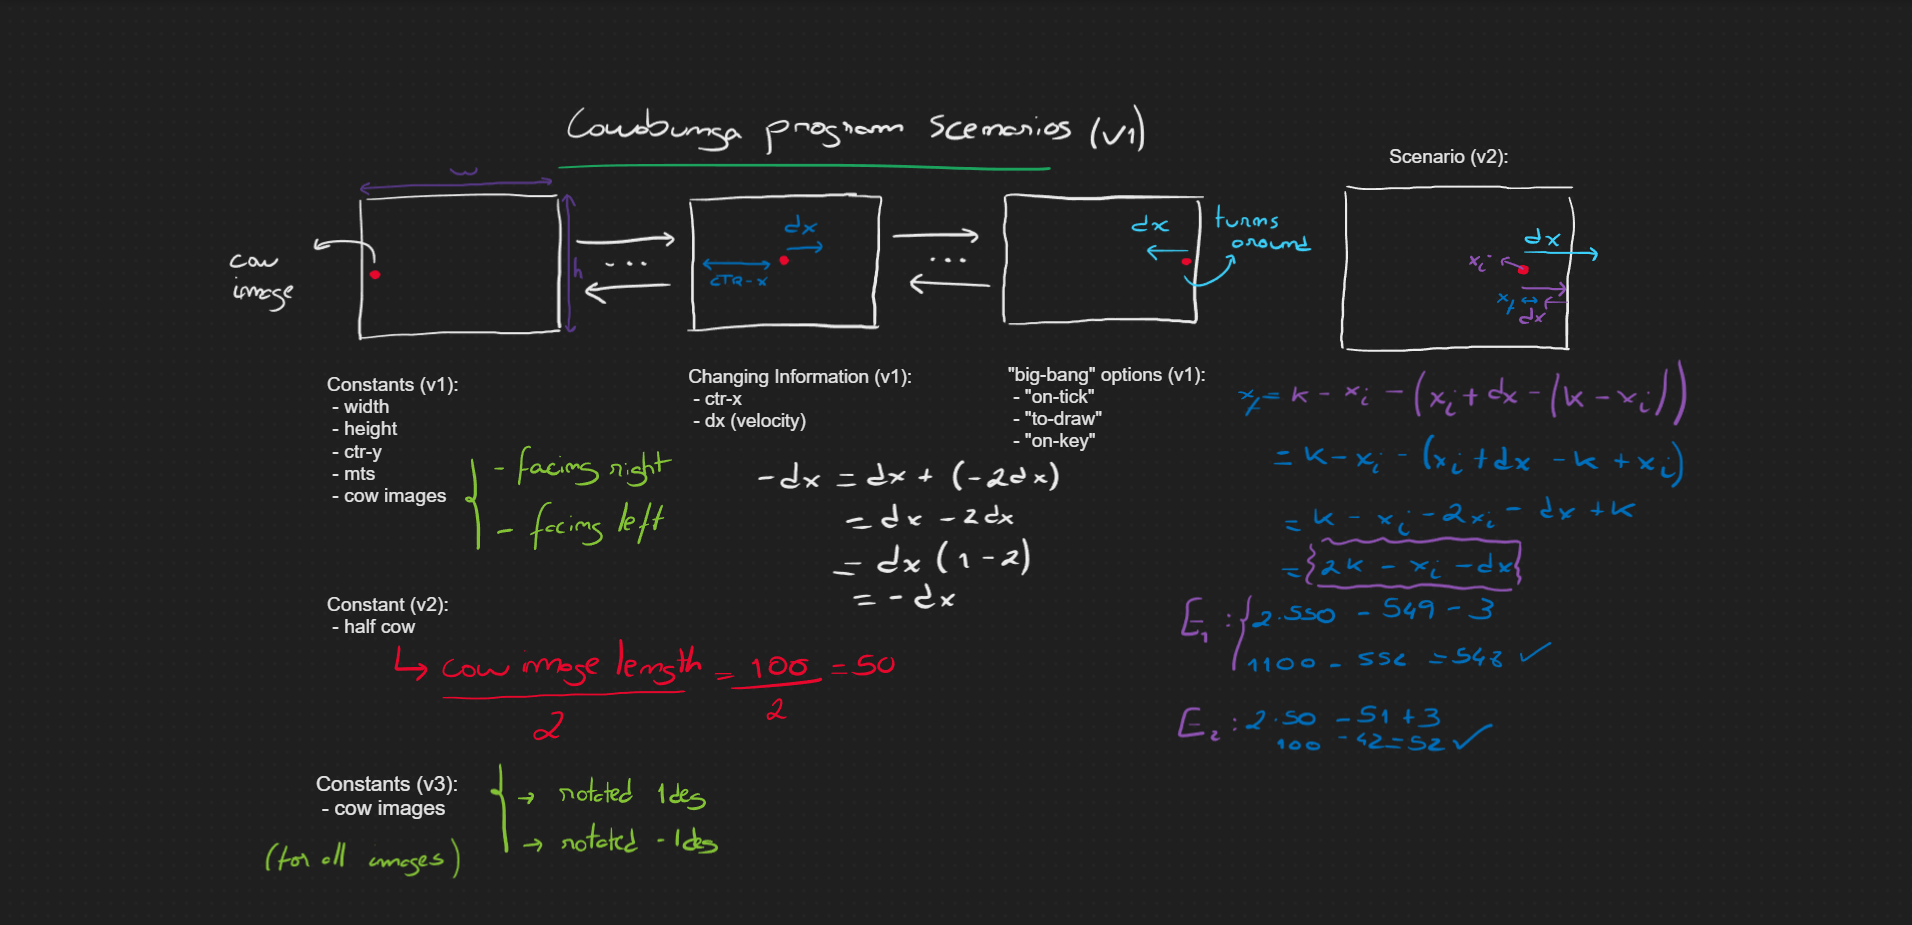 Cowabunga program scenarios (v1)
Scenario (v2):
w
h
cow
image
dx
CTR-x
dx
turns
around
dx
xi
xf
dx
Constants (v1):
- width
- height
- ctr-y
- mts
- cow images
- facing right
- facing left
Changing Information (v1):
- ctr-x
- dx (velocity)
"big-bang" options (v1):
- "on-tick"
- "to-draw"
- "on-key"
-dx = dx + (-2dx)
= dx - 2dx
= dx (1 - 2)
= - dx
xf = k - xi - (xi + dx - (k - xi))
= k - xi - (xi + dx - k + xi)
= k - xi - 2xi - dx + k
= {2k - xi - dx}
E1 : { 2.550 - 549 - 3
1100 - 552 = 548 ✓
E2 : 2.50 - 51 + 3
100 - 42 = 52 ✓
Constant (v2):
- half cow
↳ cow image length = 100 = 50
2 2
Constants (v3):
- cow images
(for all images)
→ rotated 1deg
→ rotated -1deg